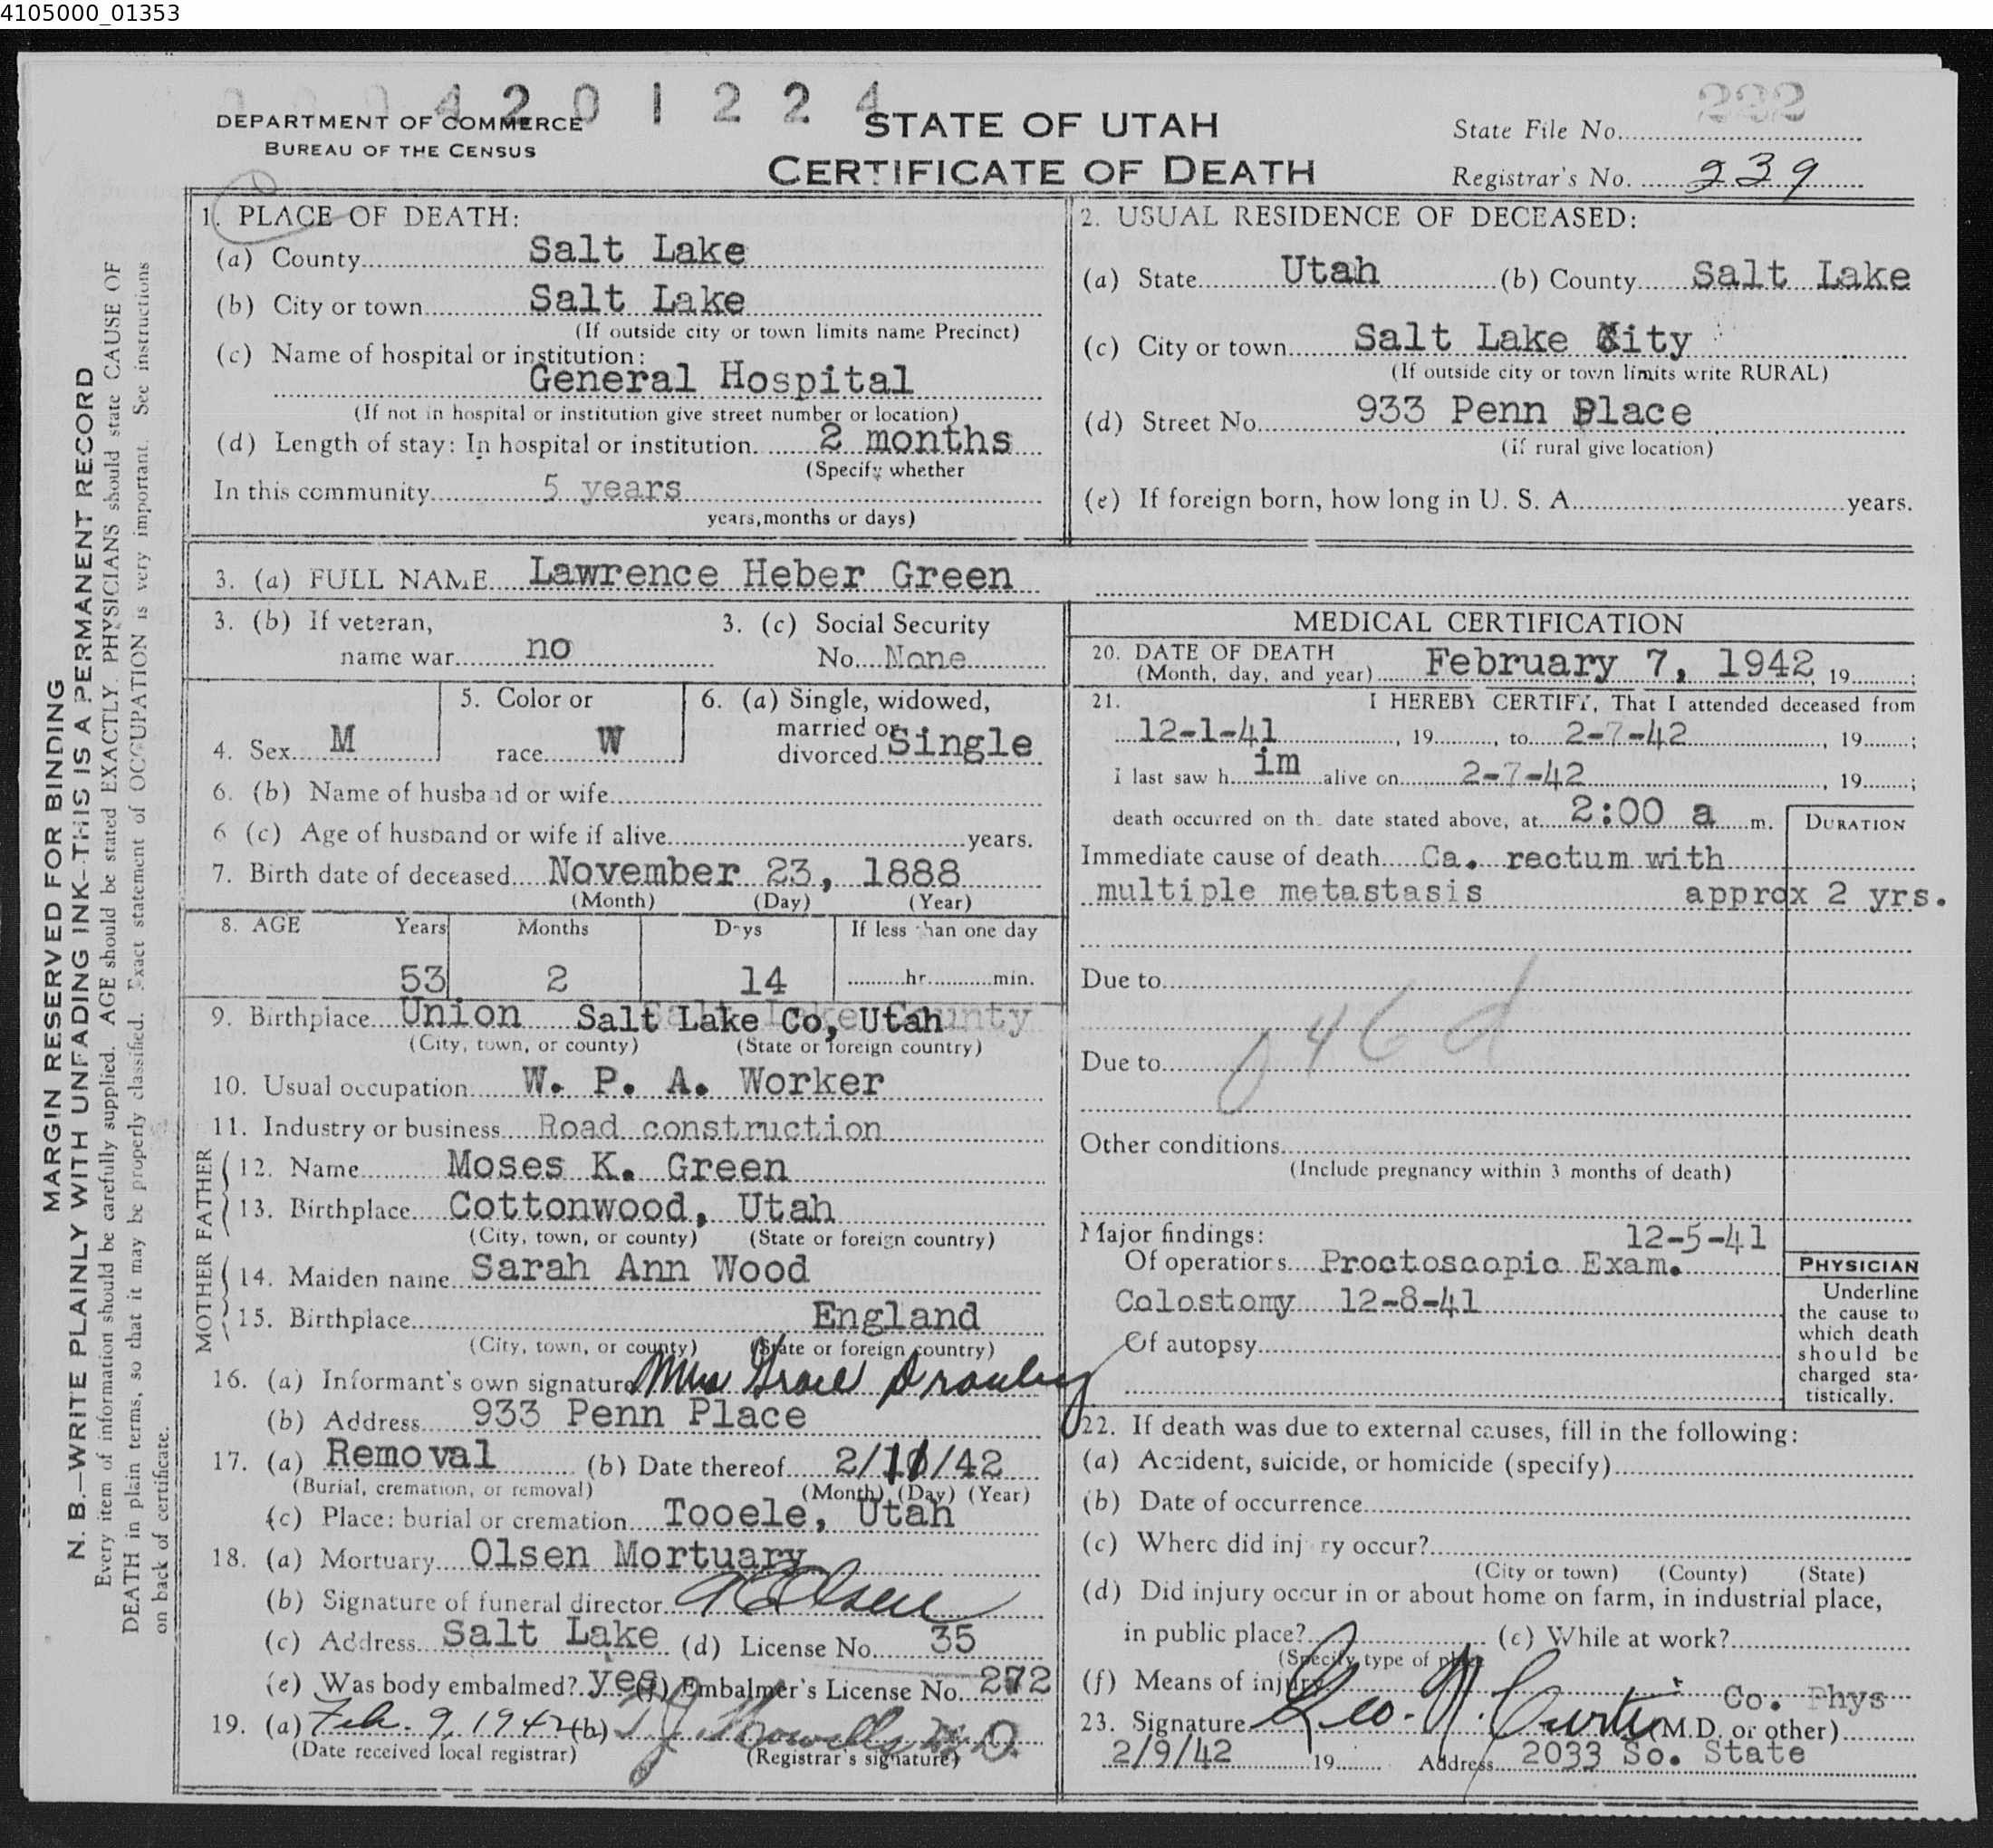 4105000_01353
4 2 0 1 2 2 4
DEPARTMENT OF COMMERCE
BUREAU OF THE CENSUS
STATE OF UTAH
CERTIFICATE OF DEATH
State File No. 232
Registrar's No. 239
MARGIN RESERVED FOR BINDING
N. B.—WRITE PLAINLY WITH UNFADING INK--THIS IS A PERMANENT RECORD
Every item of information should be carefully supplied. AGE should be stated EXACTLY. PHYSICIANS should state CAUSE OF
DEATH in plain terms, so that it may be properly classified. Exact statement of OCCUPATION is very important. See instructions
on back of certificate.
1. PLACE OF DEATH:
(a) County Salt Lake
(b) City or town Salt Lake
(If outside city or town limits name Precinct)
(c) Name of hospital or institution:
General Hospital
(If not in hospital or institution give street number or location)
(d) Length of stay: In hospital or institution 2 months
(Specify whether
In this community 5 years
years, months or days)
2. USUAL RESIDENCE OF DECEASED:
(a) State Utah (b) County Salt Lake
(c) City or town Salt Lake City
(If outside city or town limits write RURAL)
(d) Street No. 933 Penn Place
(if rural give location)
(e) If foreign born, how long in U. S. A. years.
3. (a) FULL NAME Lawrence Heber Green
3. (b) If veteran,
name war no
3. (c) Social Security
No. None
4. Sex M
5. Color or
race W
6. (a) Single, widowed,
married or
divorced Single
6. (b) Name of husband or wife
6 (c) Age of husband or wife if alive years.
7. Birth date of deceased November 23, 1888
(Month) (Day) (Year)
8. AGE Years Months Days If less than one day
53 2 14 hr. min.
9. Birthplace Union Salt Lake Co, Utah
(City, town, or county) (State or foreign country)
10. Usual occupation W. P. A. Worker
11. Industry or business Road construction
FATHER
12. Name Moses K. Green
13. Birthplace Cottonwood, Utah
(City, town, or county) (State or foreign country)
MOTHER
14. Maiden name Sarah Ann Wood
15. Birthplace England
(City, town, or county) (State or foreign country)
16. (a) Informant's own signature Mrs Grace
(b) Address 933 Penn Place
17. (a) Removal (b) Date thereof 2/11/42
(Burial, cremation, or removal) (Month) (Day) (Year)
(c) Place: burial or cremation Tooele, Utah
18. (a) Mortuary Olsen Mortuary
(b) Signature of funeral director Olsen
(c) Address Salt Lake (d) License No. 35
(e) Was body embalmed? yes (f) Embalmer's License No. 272
19. (a) Feb. 9, 1942 (b) T J Howells M.D.
(Date received local registrar) (Registrar's signature)
MEDICAL CERTIFICATION
20. DATE OF DEATH
(Month, day, and year) February 7, 1942, 19 ;
21. I HEREBY CERTIFY, That I attended deceased from
12-1-41, 19 , to 2-7-42, 19 ;
I last saw h im alive on 2-7-42, 19 ;
death occurred on the date stated above, at 2:00 a m.
DURATION
Immediate cause of death Ca. rectum with
multiple metastasis approx 2 yrs.
Due to
046d
Due to
Other conditions
(Include pregnancy within 3 months of death)
Major findings: 12-5-41
Of operations Proctoscopic Exam.
Colostomy 12-8-41
Of autopsy
PHYSICIAN
Underline
the cause to
which death
should be
charged sta-
tistically.
22. If death was due to external causes, fill in the following:
(a) Accident, suicide, or homicide (specify)
(b) Date of occurrence
(c) Where did injury occur?
(City or town) (County) (State)
(d) Did injury occur in or about home on farm, in industrial place,
in public place? (e) While at work?
(Specify type of place
(f) Means of injury
Co. Phys
23. Signature Geo. N. Curtis (M.D. or other)
2/9/42 19 Address 2033 So. State